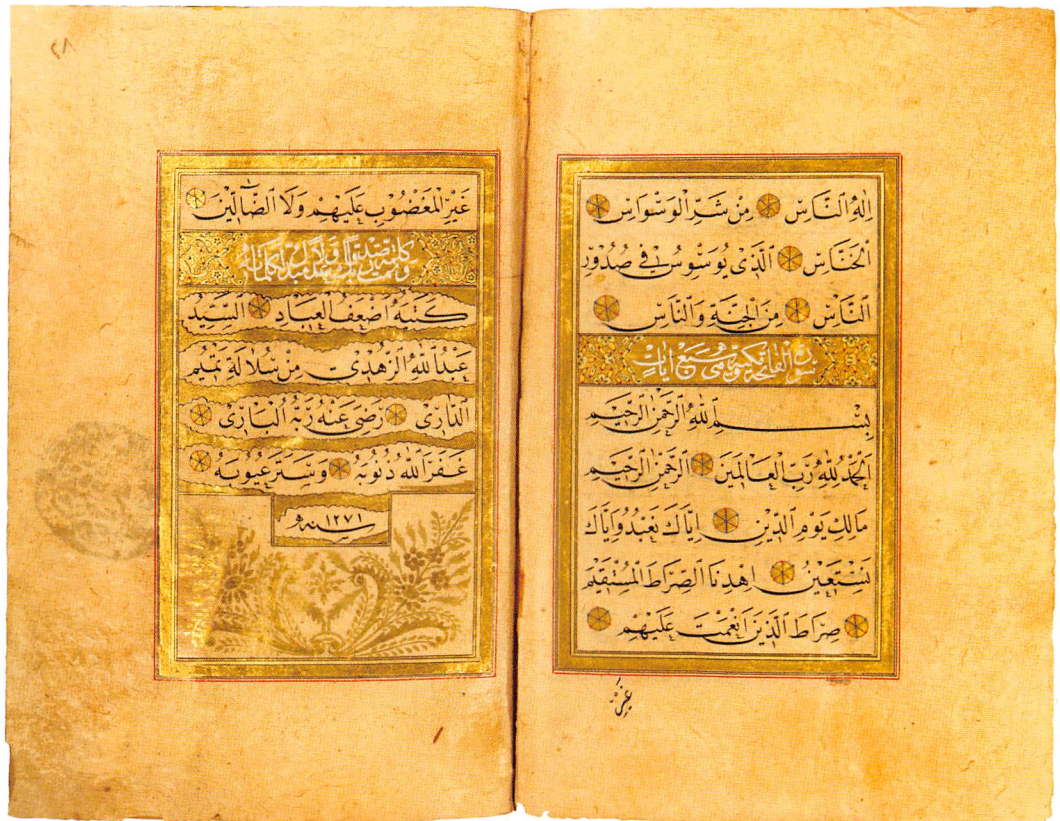 اِلٰهِ النَّاسِ مِنْ شَرِّ الْوَسْوَاسِ
الْخَنَّاسِ الَّذٖى يُوَسْوِسُ فٖى صُدُورِ
النَّاسِ مِنَ الْجِنَّةِ وَالنَّاسِ
سورة الفاتحة مكية وهى سبع ايات
بِسْمِ اللهِ الرَّحْمٰنِ الرَّحٖيمِ
اَلْحَمْدُ لِلهِ رَبِّ الْعَالَمٖينَ اَلرَّحْمٰنِ الرَّحٖيمِ
مَالِكِ يَوْمِ الدّٖينِ اِيَّاكَ نَعْبُدُ وَاِيَّاكَ
نَسْتَعٖينُ اِهْدِنَا الصِّرَاطَ الْمُسْتَقٖيمَ
صِرَاطَ الَّذٖينَ اَنْعَمْتَ عَلَيْهِمْ
غير
٢٨
غَيْرِ الْمَغْضُوبِ عَلَيْهِمْ وَلَا الضَّٓالّٖينَ
وتمت كلمة ربك صدقا وعدلا لا مبدل لكلماته
كَتَبَهُ اَضْعَفُ الْعِبَادِ السَّيِّدُ
عَبْدُ اللهِ الزُّهْدِىُّ مِنْ سُلَالَةِ تَمٖيمٍ
الدَّارٖى رَضِىَ عَنْهُ رَبُّهُ الْبَارٖى
غَفَرَ اللهُ ذُنُوبَهُ وَسَتَرَ عُيُوبَهُ
سنه ١٢٧١